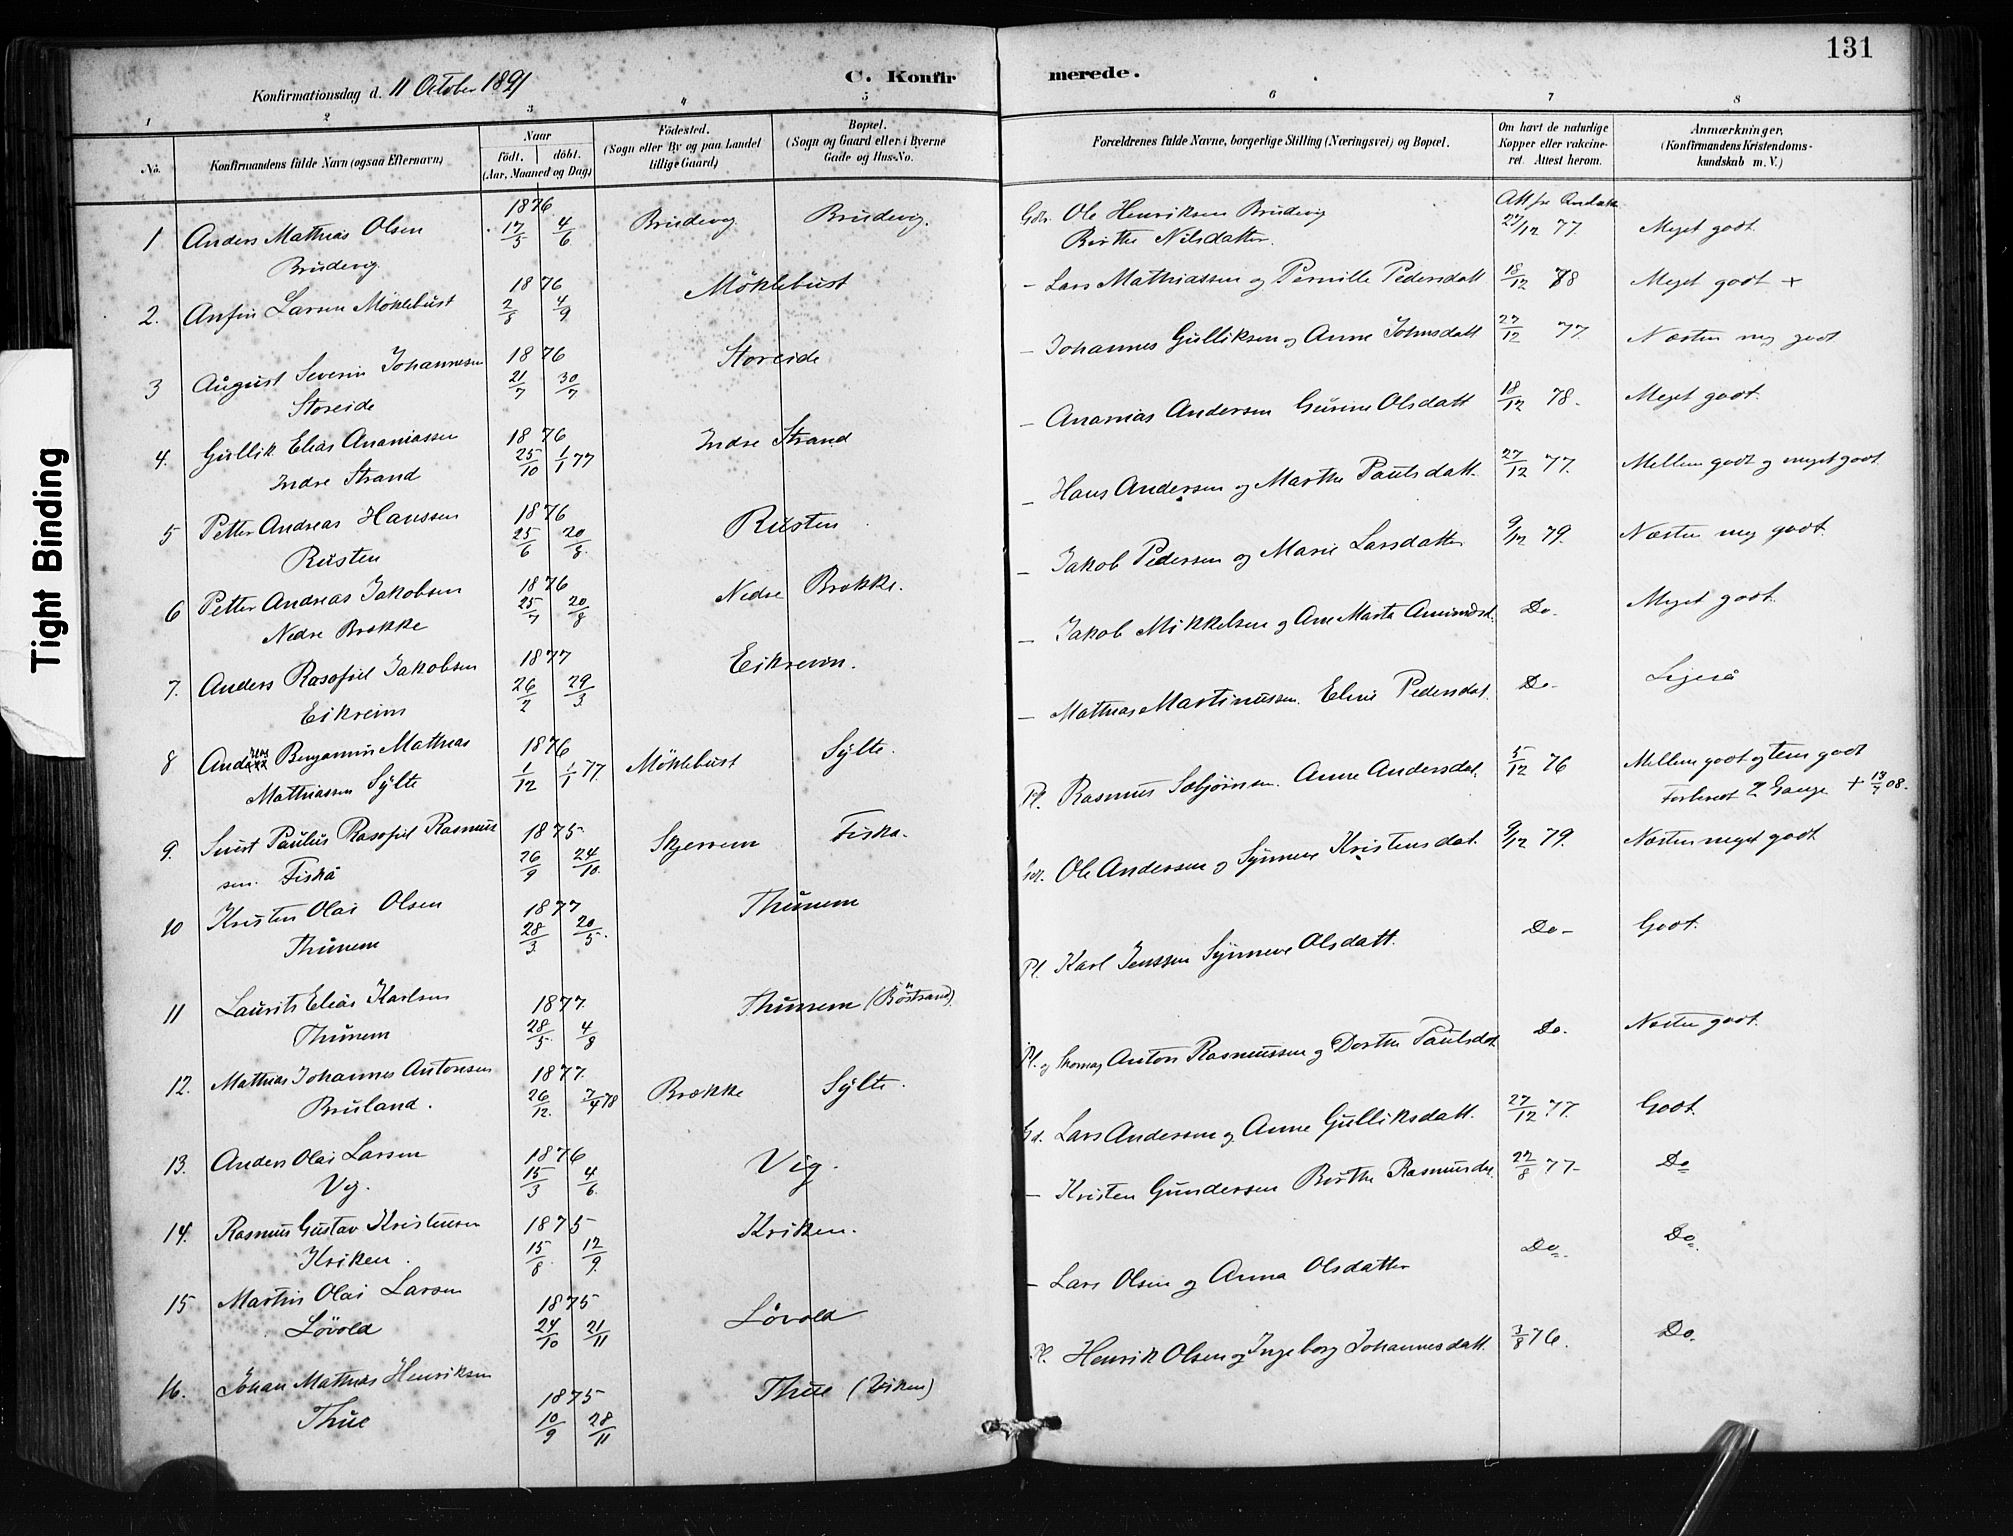 131
Konfirmationsdag d. 11 October 1891
C. Konfirmerede.
1 2 3 4 5 6 7 8
No.
Konfirmandens fulde Navn (ogsaa Efternavn)
Naar
födt. döbt.
(Aar, Maaned og Dag)
Födested.
(Sogn eller By og paa Landet
tillige Gaard)
Bopæl.
(Sogn og Gaard eller i Byerne
Gade og Hus-No.
Forældrenes fulde Navne, borgerlige Stilling (Næringsvei) og Bopæl.
Om havt de naturlige
Kopper eller vakcine-
ret. Attest herom.
Anmærkninger,
(Konfirmandens Kristendoms-
kundskab m. V.)
1 Anders Mathias Olsen
Brudevig
1876
17/5 4/6
Brudevig Brudevig.
Gdr. Ole Henriksen Brudevig
Berthe Nilsdatter.
27/12 77.
Meget godt
2. Anfin Larsen Möklebust
1876
2/8 4/9
Möklebust
– Lars Mathiassen og Pernille Pedersdatt
18/12 78
Meget godt +
3 August Severin Johannesen
Storeide
1876
21/7 30/7
Storeide
– Johannes Gulliksen og Anne Johnsdatt
27/12 77.
Næsten meg godt
4. Gullik Elias Ananiassen
Indre Strand
1876
25/10 1/1 77
Indre Strand
– Ananias Andersen Gurine Olsdatt
18/12 78.
Meget godt.
5 Petter Andreas Hanssen
Rusten
1876
25/6 20/8.
Rusten
– Hans Andersen og Marthe Paulsdatt.
27/12 77.
Mellem godt og meget godt
6 Petter Andreas Jakobsen
Nedre Brække
1876
25/7 20/8
Nedre Brække.
– Jakob Pedersen og Marie Larsdatter
9/12 79.
Næsten meg godt.
7. Anders Rasofiel Jakobsen
Eikreim
1877
26/2 29/3.
Eikreim.
– Jakob Mikkelsen og Ane Marta Amundsd.
Do.
Meget godt.
8 Andreas Benjamin Mathias
Mathiassen Sylte
1876
1/12 1/1 77
Möklebust Sylte.
– Mathias Martinussen. Eline Pedersdat.
Do.
9. Knut Paulus Rasofiel Rasmus
sen. Fiskå
1875.
26/9 24/10.
Skjerrem Fiskå.
Pl. Rasmus Sebjörnsen. Anne Andersdat.
5/12 76
Mellem godt og tem godt
2 Gange + 13/7 08.
10 Kristen Olai Olsen
Thunem
1877
28/3. 20/5.
Thunem
Ole Andersen og Synneve Kristensdat.
9/12 79.
Næsten meget godt
11 Laurits Elias Karlsen
Thunem
1877.
28/5. 4/8
Thunem (Böstrand)
Pl. Karl Jenssen Synneve Olsdatt.
Do.
Godt.
12. Mathias Johannes Antonsen
Bruland.
1877.
26/12. 7/4 78
Brække Sylte.
Pl. og Skomag Anton Rasmussen og Dorthe Paulsdat
Do.
Næsten godt.
13. Anders Olai Larsen
Vig.
1876
15/3 4/6.
Vig.
Gd. Lars Andersen og Anne Gulliksdatt.
27/12 77.
Godt.
14. Rasmus Gustav Kristensen
Kriken.
1875
15/8 12/9.
Kriken.
– Kristen Gundersen Berthe Rasmusda.
22/8 77.
Do
15 Martin Olai Larsen
Lövold
1875
24/10 21/11
Lövold
– Lars Olsen og Anna Olsdatter
Do.
Do.
16. Johan Mathias Henriksen
Thue
1875
10/9 28/11
Thue (Viken)
Pl. Henrik Olsen og Ingeborg Johannesdatt.
3/8 76.
Do.
Tight Binding